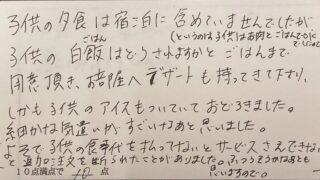 子供の夕食は宿泊に含めていませんでしたが、
(というのは子供はお肉とごはんだけ
でした)
ごはん
子供の白飯はどうされますかとごはんまで
用意頂き、お部屋へデザートも持ってきて下さり、
しかも子供のアイスもついていておどろきました。
細かな気遣いがすごいなあと思いました。
よそで子供の食事代を払ってないとサービスさえできない
と追加注文を断られたことがありました。ふつうそうかなあとも
10点満点で 10 点
思いますので。